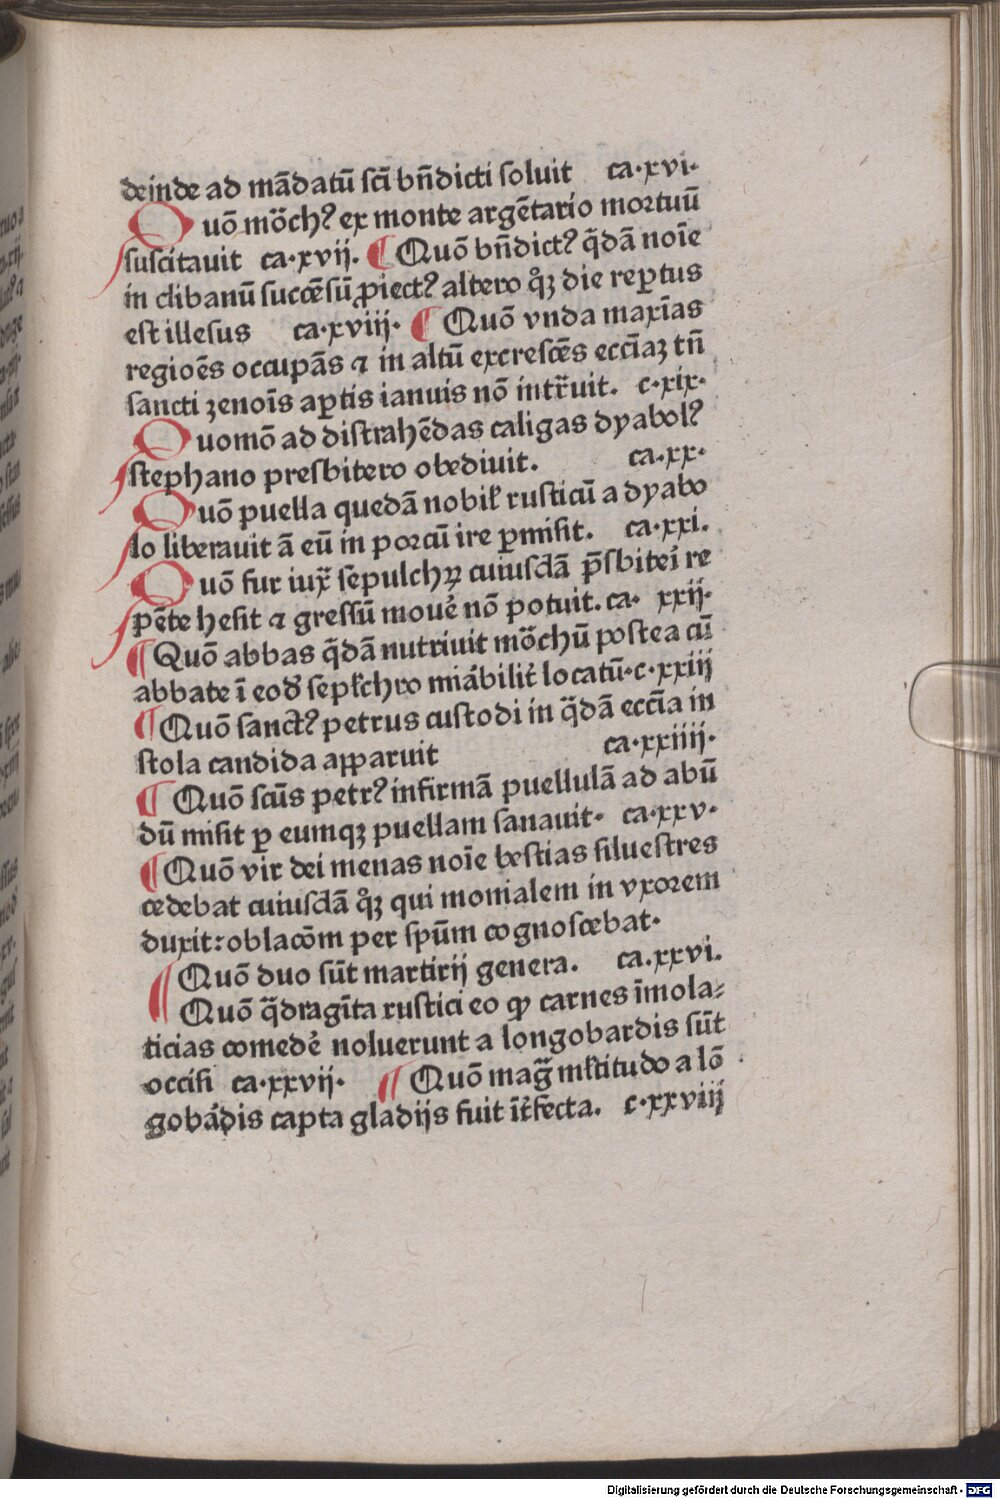 deinde ad mādatū sc̄i bn̄dicti soluit ca.xvi.
Quō mo᷑chꝰ ex monte argētario mortuū
suscitauit ca.xvij. ¶ Quō bn̄dictꝰ q̄dā noīe
in clibanū succēsū ꝓiectꝰ altero qͦꝫ die rep̄tus
est illesus ca.xviij. ¶ Quō vnda maxīas
regioēs occupās ⁊ in altū excrescēs eccīaꝫ tn̄
sancti zenoīs ap̄tis ianuis nō intr̄uit. c.xix.
Quomō ad distrahēdas caligas dyabolꝰ
stephano presbitero obediuit. ca.xx.
Quō puella quedā nobiłr rusticū a dyabo
lo liberauit ā eū in porcū ire ꝑmisit. ca.xxi.
Quō fur iux̄ sepulchꝝ cuiusdā p̄sbiteī re
pēte hesit ⁊ gressū mouē nō potuit. ca. xxij.
¶ Quō abbas q̄dā nutriuit mōchū postea cū
abbate ī eod sepłchro miābilit locatū.c.xxiij
¶ Quō sanctꝰ petrus custodi in q̄dā eccīa in
stola candida apparuit ca.xxiiij.
¶ Quō scūs petrꝰ infirmā puellulā ad abū
dū misit ꝑ eumqꝫ puellam sanauit. ca.xxv.
¶ Quō vir dei menas noīe bestias siluestres
cedebat cuiusdā qͦꝫ qui monialem in vxorem
duxit:oblacōm per spūm cognoscebat.
¶ Quō duo sūt martirij genera. ca.xxvi.
Quō q̄dragīta rustici eo ꝙ carnes īmola⸗
ticias comedē noluerunt a longobardis sūt
occisi ca.xxvij. ¶ Quō maḡ młtitudo a lō
gobādis capta gladijs fuit īt̄fecta. c.xxviij
Digitalisierung gefördert durch die Deutsche Forschungsgemeinschaft - DFG